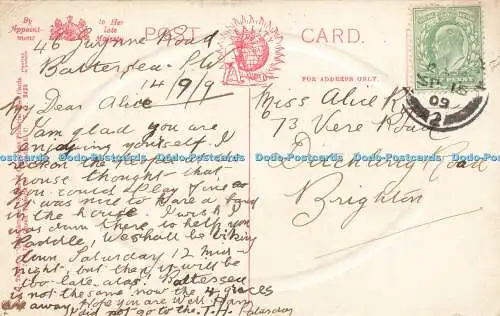 By
Appoint-
ment
to Her
late
Majesty
POST
CARD.
FOR ADDRESS ONLY.
HALF PENNY
SP 15
09
2
46 Jwynne Road
Battersea S.W
14/9/9
My Dear Alice
I am glad you are
enjoying yourself. I
reckon the people in the
house thought that
you could play fine as
it was nice to have a band
in the house. I wish I
was down there to help you
Paddle. We shall be biking
down Saturday 12 mid-
night, but then it will be
too late alas! Battersea
is not the same now the 4 graces
are away. Hope you are well. Harry
did not go to the T.H. Saturday
Miss Alice
73 Vere Road
Ditchling Road
Brighton
Da-Postcards Da-Postcards Da-Postcards Da-Postcards Da-Postcards